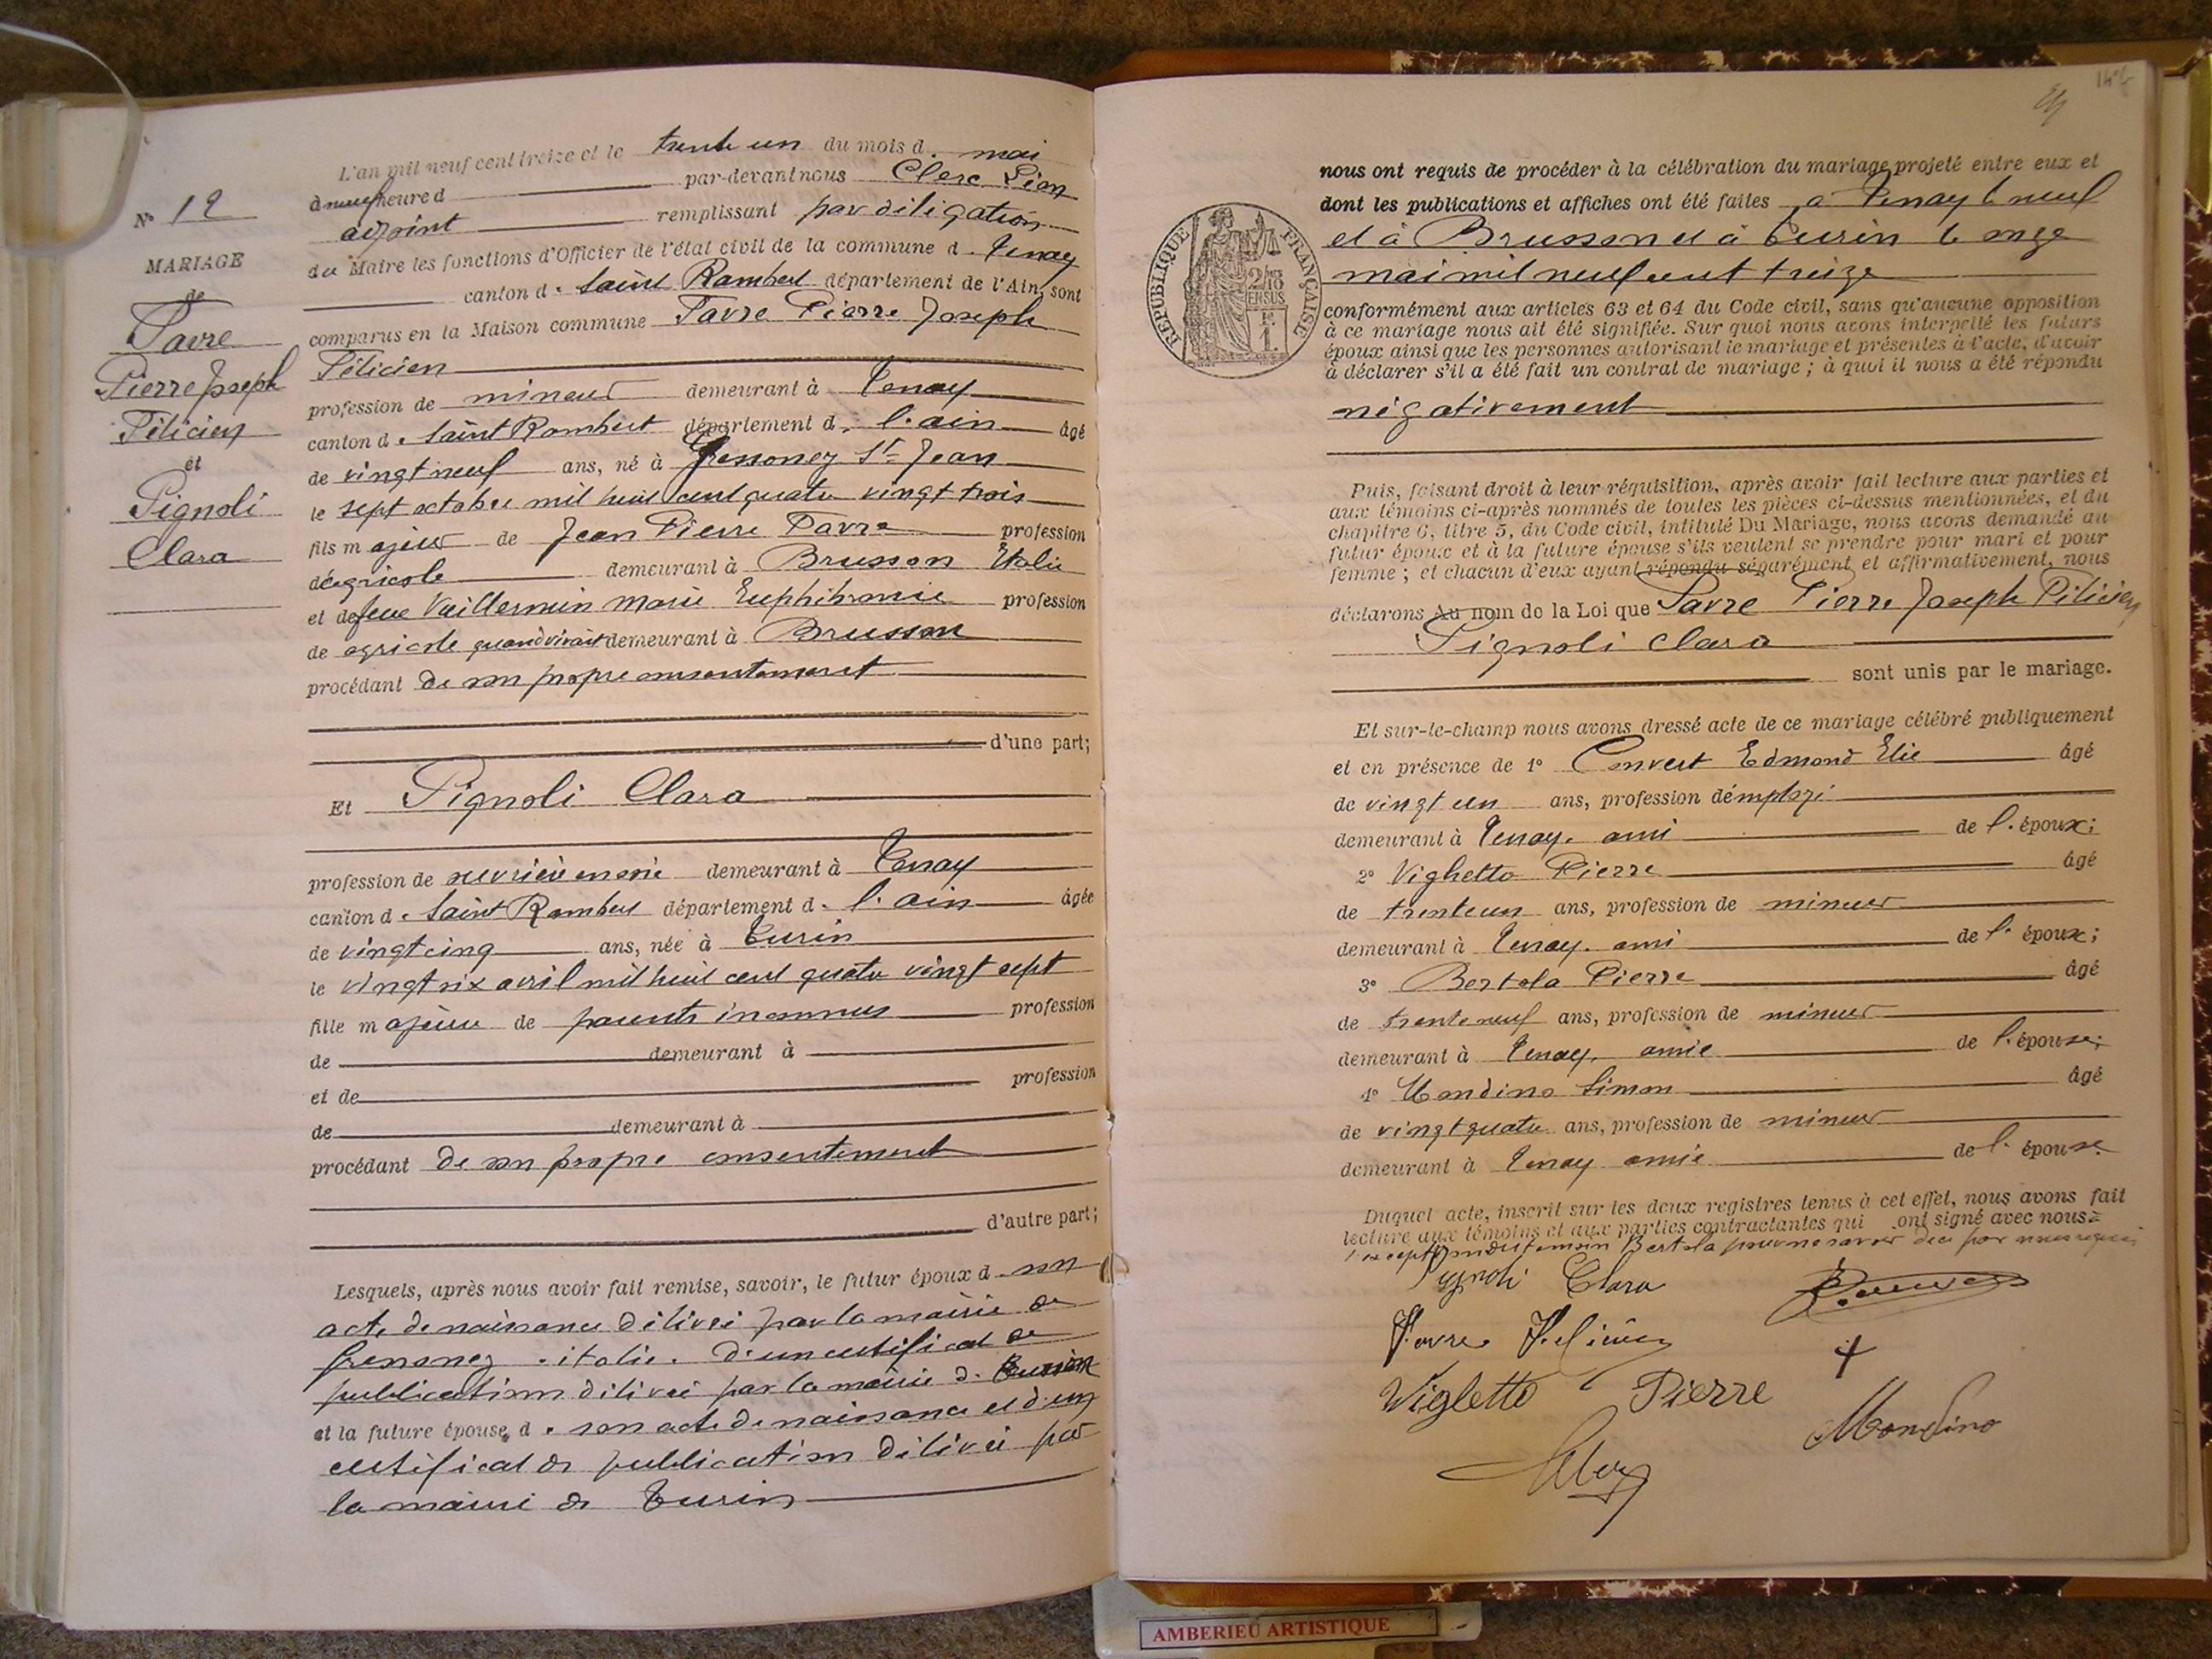 N° 12
MARIAGE
de
Favre
Pierre Joseph
Félicien
et
Pignoli
Clara
L'an mil neuf cent treize et le trente un du mois d. mai
à neuf heure d par-devant nous Clerc Léon
adjoint remplissant par déligation
du Maire les fonctions d'Officier de l'état civil de la commune d. Tenay
canton d. Saint Rambert département de l'Ain, sont
comparus en la Maison commune Favre Pierre Joseph
Félicien
profession de mineur demeurant à Tenay
canton d. Saint Rambert département d. l'ain âgé
de vingt neuf ans, né à Gressoney St Jean
le sept octobre mil huit cent quatre vingt trois
fils majeur de Jean Pierre Favre profession
d'agricole demeurant à Brusson Italie
et de feue Vuillermin Marie Euphibronie profession
de agricole quand vivait demeurant à Brusson
procédant de son propre consentement
d'une part;
Et Pignoli Clara
profession de ouvrière en soie demeurant à Tenay
canton d. Saint Rambert département d. l'ain âgée
de vingt cinq ans, née à Turin
le vingt six avril mil huit cent quatre vingt sept
fille majeure de parents inconnus profession
de demeurant à
et de profession
de demeurant à
procédant de son propre consentement
d'autre part;
Lesquels, après nous avoir fait remise, savoir, le futur époux d. son
acte de naissance délivré par la mairie de
Gressoney. italie. d'un certificat de
publication délivré par la mairie d.
et la future épouse, d. son acte de naissance et d'un
certificat de publication délivré par
la mairie de Turin
nous ont requis de procéder à la célébration du mariage projeté entre eux et
dont les publications et affiches ont été faites à Tenay le neuf
et à Brusson et à Turin le onze
mai mil neuf cent treize
RÉPUBLIQUE FRANÇAISE
conformément aux articles 63 et 64 du Code civil, sans qu'aucune opposition
à ce mariage nous ait été signifiée. Sur quoi nous avons interpellé les futurs
époux ainsi que les personnes autorisant le mariage et présentes à l'acte, d'avoir
à déclarer s'il a été fait un contrat de mariage; à quoi il nous a été répondu
négativement
Puis, faisant droit à leur réquisition, après avoir fait lecture aux parties et
aux témoins ci-après nommés de toutes les pièces ci-dessus mentionnées, et du
chapitre 6, titre 5, du Code civil, intitulé Du Mariage, nous avons demandé au
futur époux et à la future épouse s'ils veulent se prendre pour mari et pour
femme; et chacun d'eux ayant répondu séparément et affirmativement, nous
déclarons Au nom de la Loi que Favre Pierre Joseph Félicien
Pignoli Clara
sont unis par le mariage.
Et sur-le-champ nous avons dressé acte de ce mariage célébré publiquement
et en présence de 1° Convert Edmond Elie âgé
de vingt un ans, profession d'employé
demeurant à Tenay. ami de l'époux;
2° Vighetto Pierre âgé
de trente un ans, profession de mineur
demeurant à Tenay. ami de l'époux;
3° Bertola Pierre âgé
de trente neuf ans, profession de mineur
demeurant à Tenay. amie de l'épouse;
4° Mondino Simon âgé
de vingt quatre ans, profession de mineur
demeurant à Tenay amie de l'épouse.
Duquel acte, inscrit sur les deux registres tenus à cet effet, nous avons fait
lecture aux témoins et aux parties contractantes qui ont signé avec nous
témoin Bertola pour ne savoir de ce par nous requis
Pignoli Clara
Favre Félicien
Vigletto Pierre
Mondino
AMBERIEU ARTISTIQUE